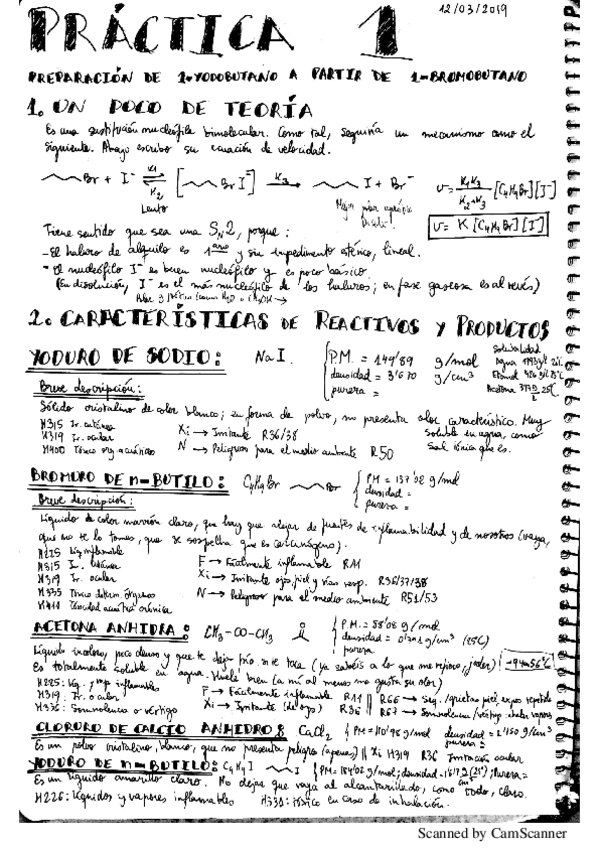 PRÁCTICA 1
12/03/2019
PREPARACIÓN DE 1-YODOBUTANO A PARTIR DE 1-BROMOBUTANO
1. UN POCO DE TEORÍA
Es una sustitución nucleófila bimolecular. Como tal, seguiría un mecanismo como el
siguiente. Abajo escribo su ecuación de velocidad.
Br + I⁻ K1 K2 [ Br I⁻ ] K3 I + Br⁻
Lento
Tiene sentido que sea una SN2, porque:
- El haluro de alquilo es 1ario y sin impedimento estérico, lineal.
- El nucleófilo I⁻ es buen nucleófilo y es poco básico.
(En disolución, I⁻ es el más nucleófilo de los haluros; en fase gaseosa es al revés)
V = K [C4H9Br][I⁻]
2. CARACTERÍSTICAS DE REACTIVOS Y PRODUCTOS
YODURO DE SODIO: NaI. P.M. = 149'89 g/mol
densidad = 3'670 g/cm³
pureza =
Solubilidad
Agua
Etanol
Acetona
Breve descripción:
Sólido cristalino de color blanco; en forma de polvo, no presenta olor característico. Muy
soluble en agua, como
sal iónica que es.
H315 Ir. cutánea
H319 Ir. ocular
H400 Tóxico org acuáticos
Xi → Irritante R36/38
N → Peligroso para el medio ambiente R50
BROMURO DE n-BUTILO: C4H9Br Br PM = 137'02 g/mol
densidad =
pureza =
Breve descripción:
Líquido de color marrón claro, que hay que alejar de fuentes de inflamabilidad y de nosotros (vaya,
que no te lo tomes, que se sospecha que es cancerígeno).
H225 Líq inflamable
H315 Ir. cutánea
H319 Ir. ocular
H335
H411 Toxicidad acuática crónica
F → Fácilmente inflamable R11
Xi → Irritante ojos, piel y vías resp. R36/37/38
N → Peligroso para el medio ambiente R51/53
ACETONA ANHIDRA: CH3-CO-CH3 P.M. = 58'08 g/mol
densidad = g/cm³ (25°C)
pureza
Líquido incoloro, poco denso y que te deja frío si te toca (ya sabéis a lo que me refiero, joder)
Es totalmente soluble en agua. Huele bien (a mí al menos me gusta su olor)
H225: Líq. y vap inflamables
H319: Ir. ocular
H336: Somnolencia o vértigo
F → Fácilmente inflamable R11
Xi → Irritante (de ojo) R36
R66 → Seq./grietas piel, expos repetida
R67 → Somnolencia/vértigo inhalar vapores
CLORURO DE CALCIO ANHIDRO: CaCl2 PM = 110'98 g/mol densidad = 2'150 g/cm³
pureza =
Es un polvo cristalino blanco, que no presenta peligro (apenas) || Xi H319 R36 Irritación ocular
YODURO DE n-BUTILO: C4H9I I PM = 184'02 g/mol; densidad = pureza =
Es un líquido amarillo claro. No dejes que vaya al alcantarillado, como todo, claro.
H226: Líquidos y vapores inflamables H330: Tóxico en caso de inhalación.
Scanned by CamScanner